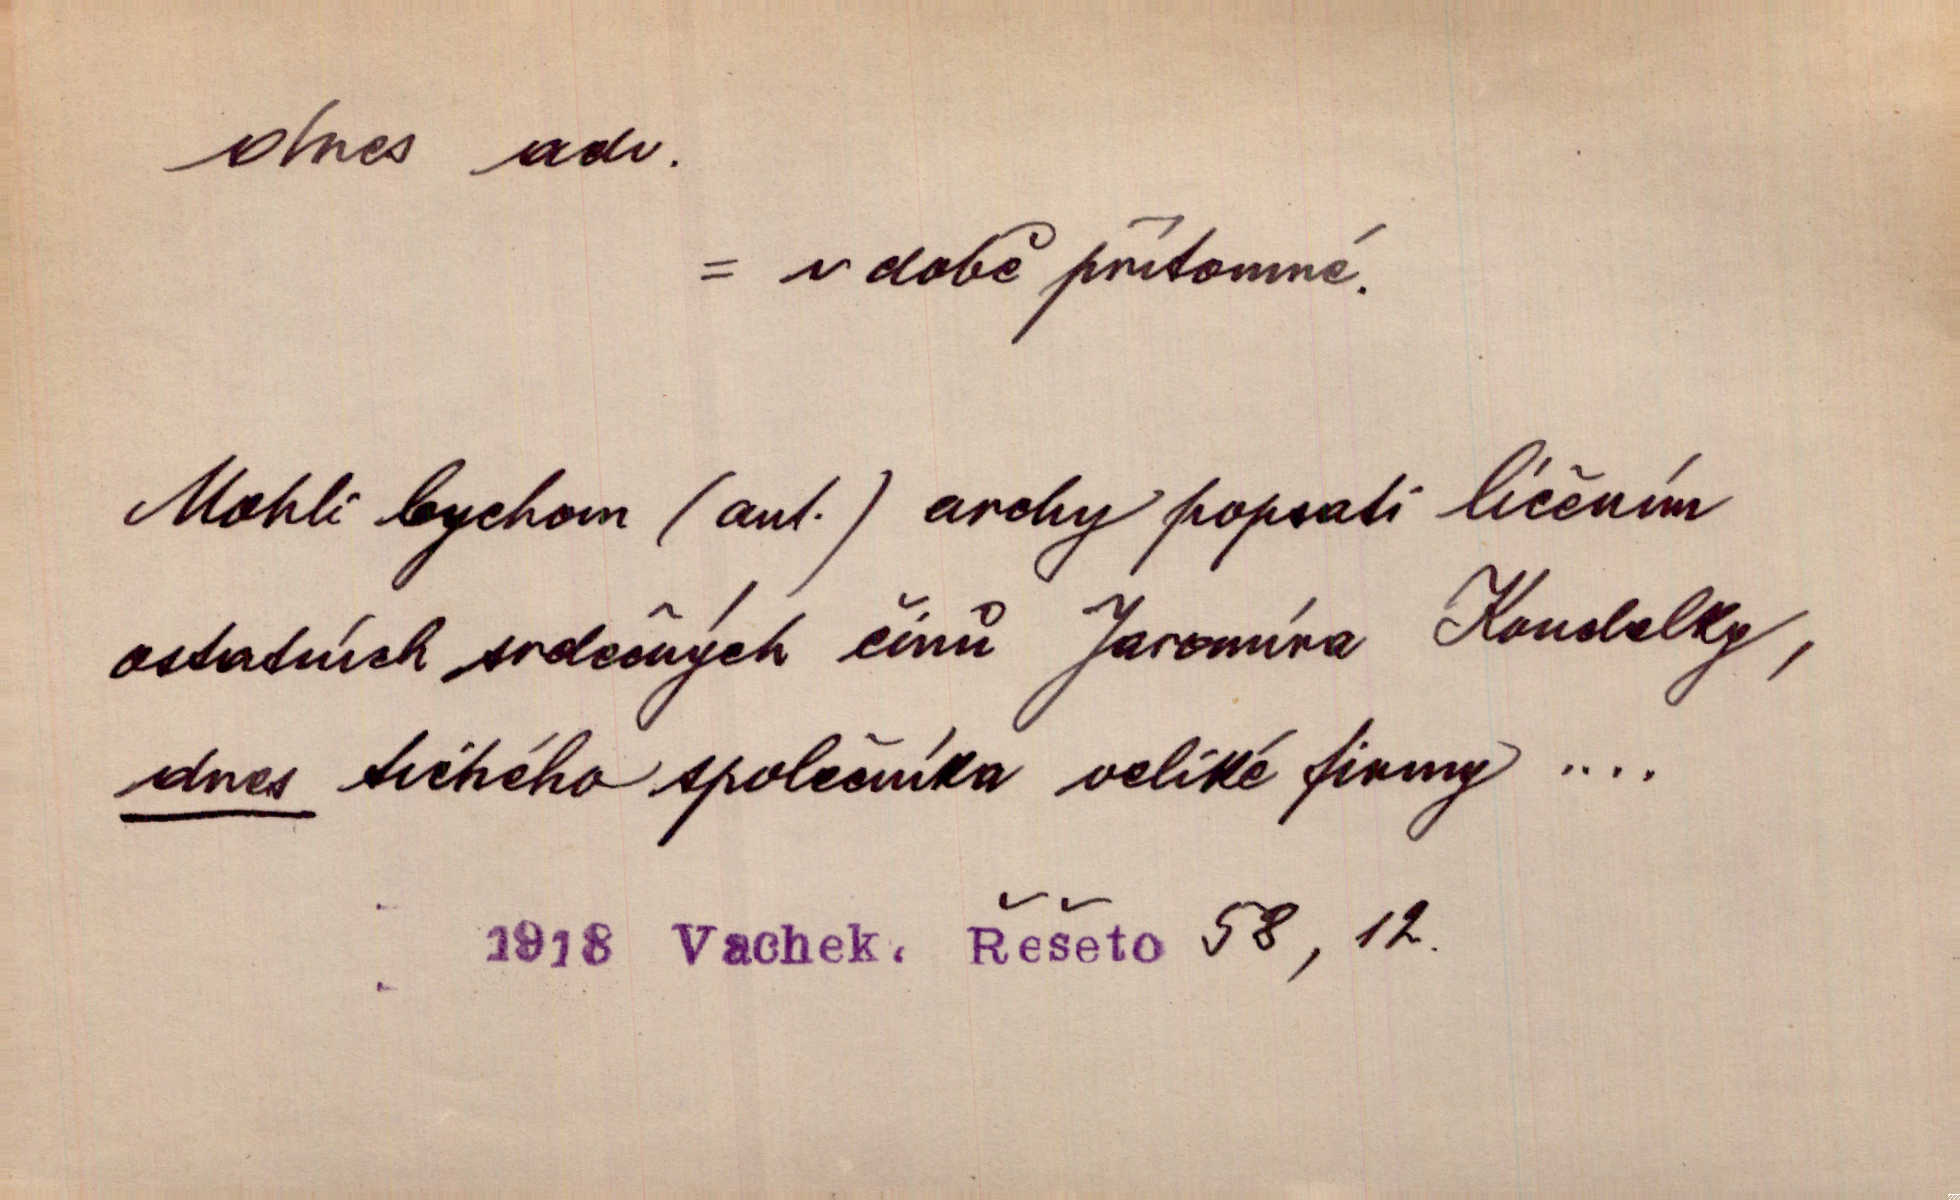 dnes adv.
= v době přítomné.
Mohli bychom (aut.) archy popsati líčením
ostatních srdečných činů Jaromíra Koudelky,
dnes tichého společníka veliké firmy ....
1918 Vachek. Řešeto 58, 12.